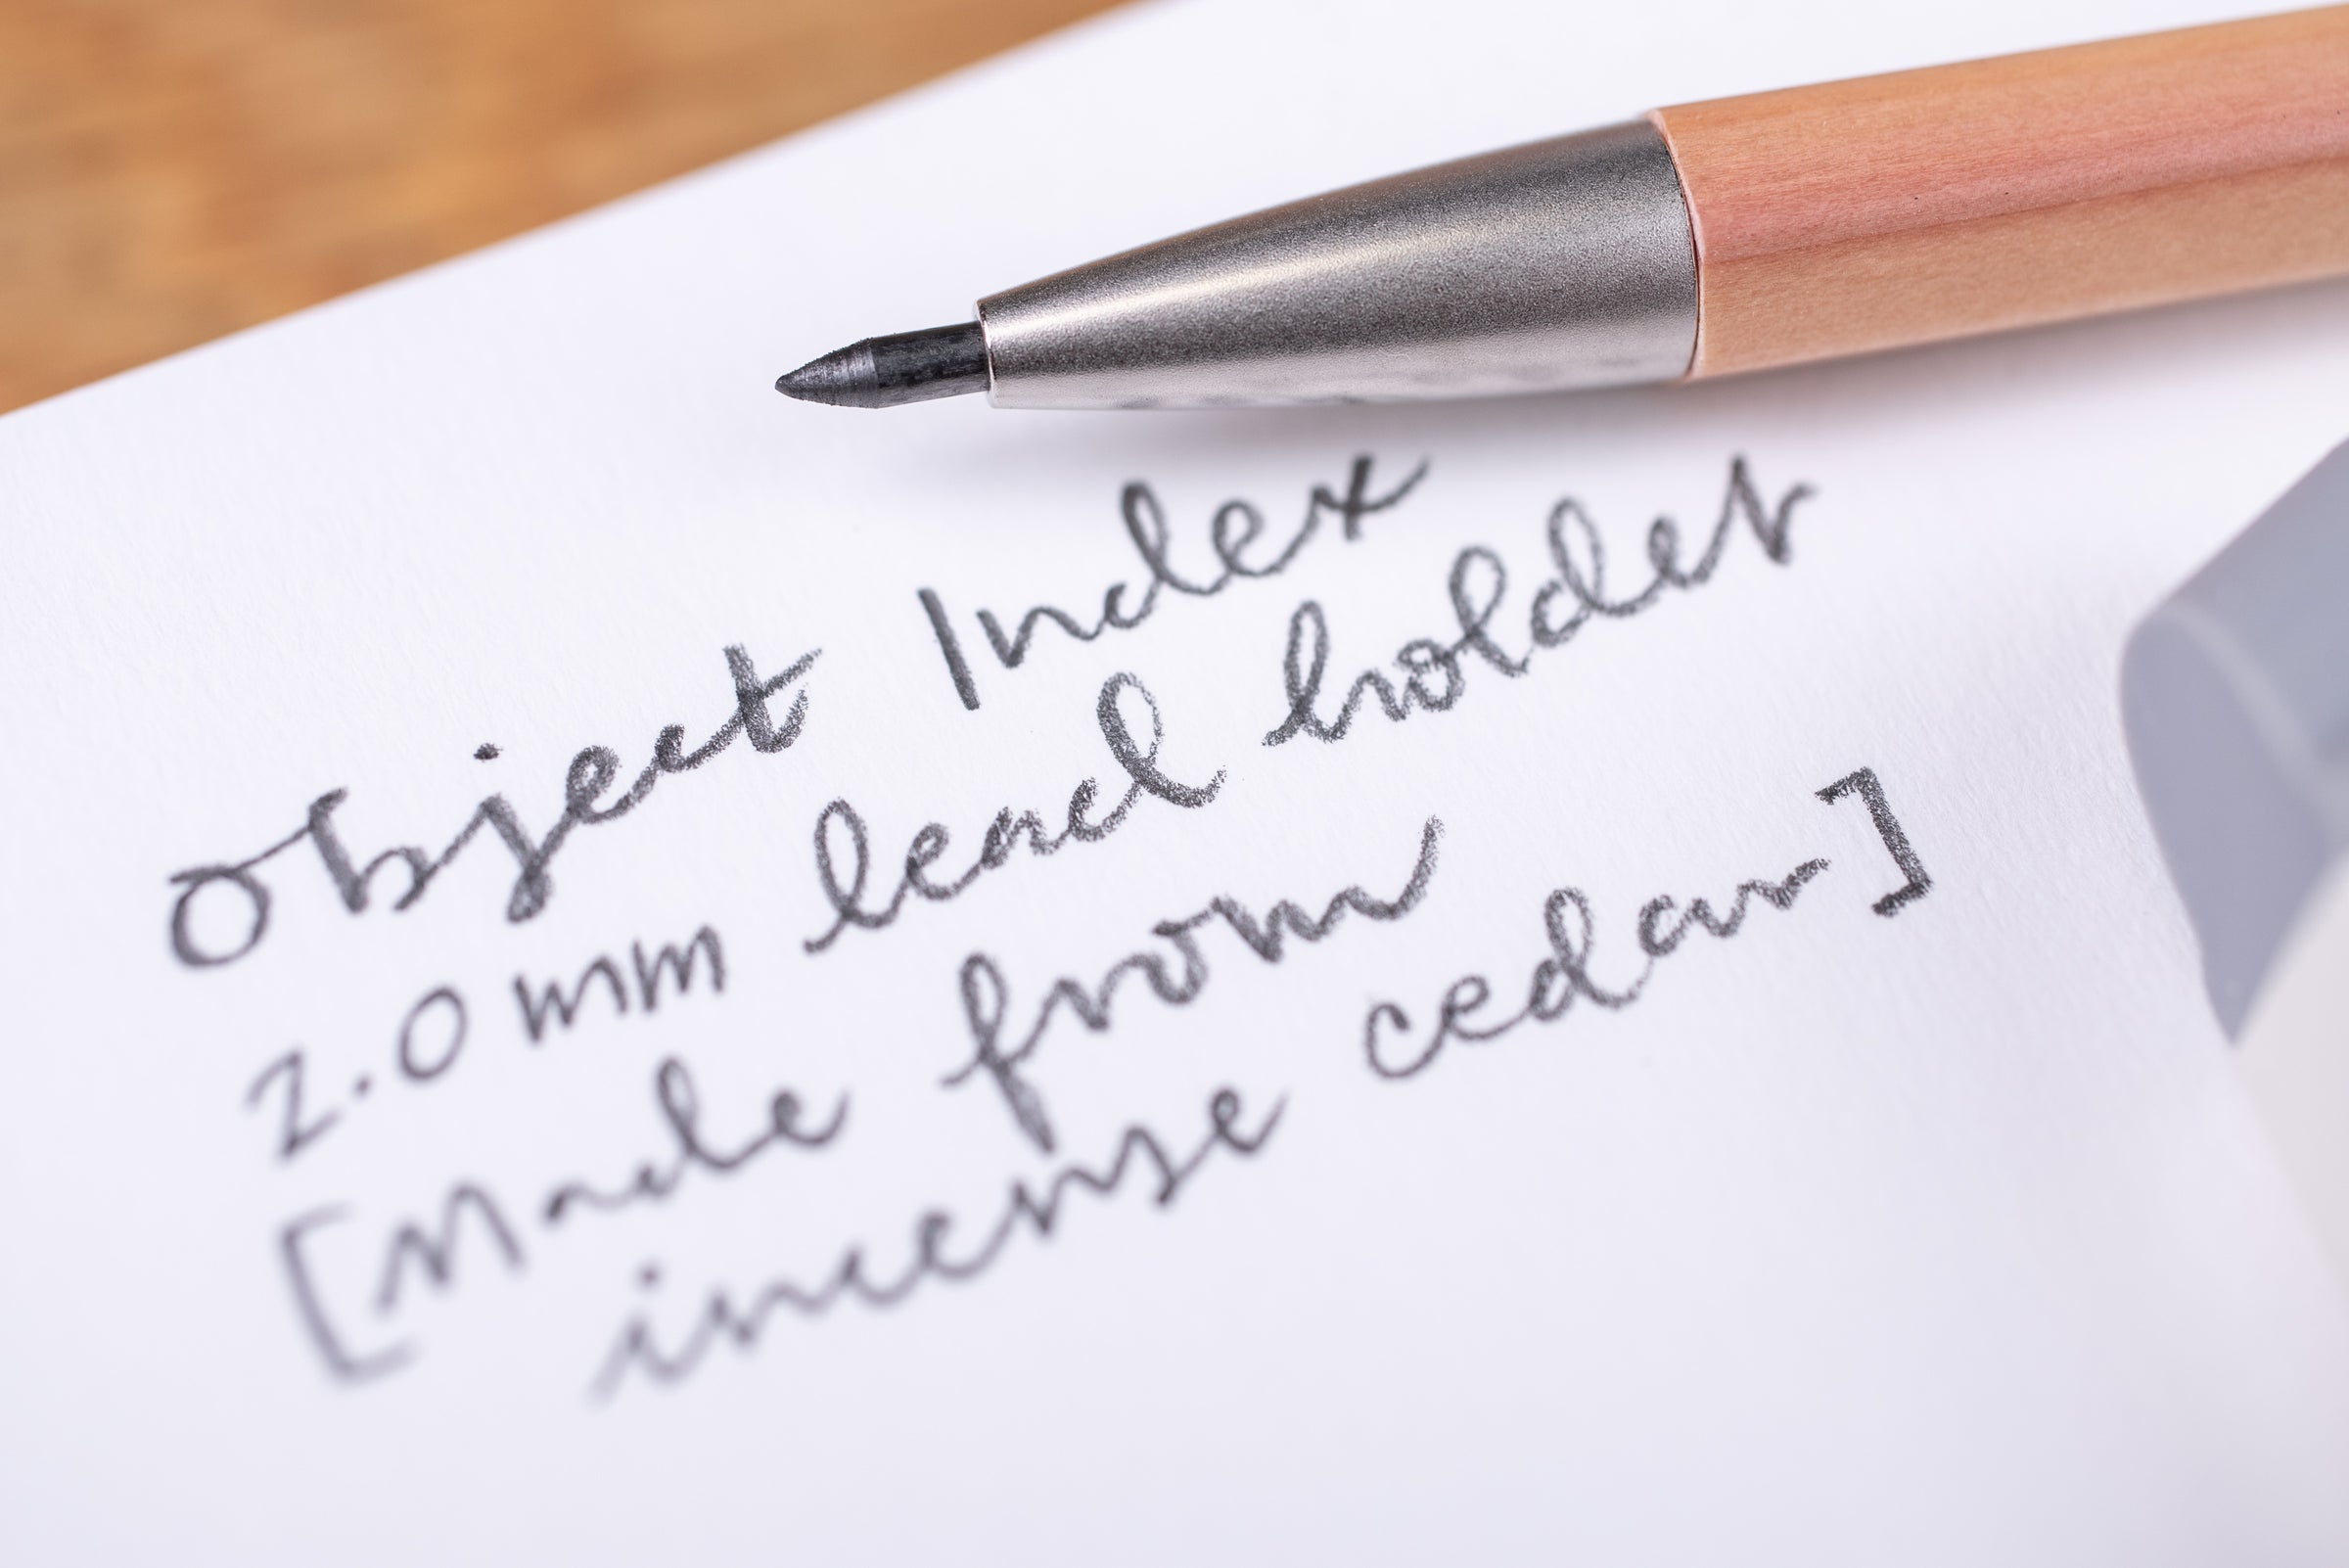 Object Index
2.0 mm lead holder
[Made from
incense cedar]